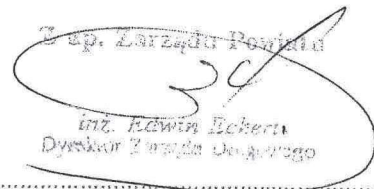 Z up. Zarządu Powiatu
inż. Edwin Eckert
Dyrektor Zarządu Drogowego